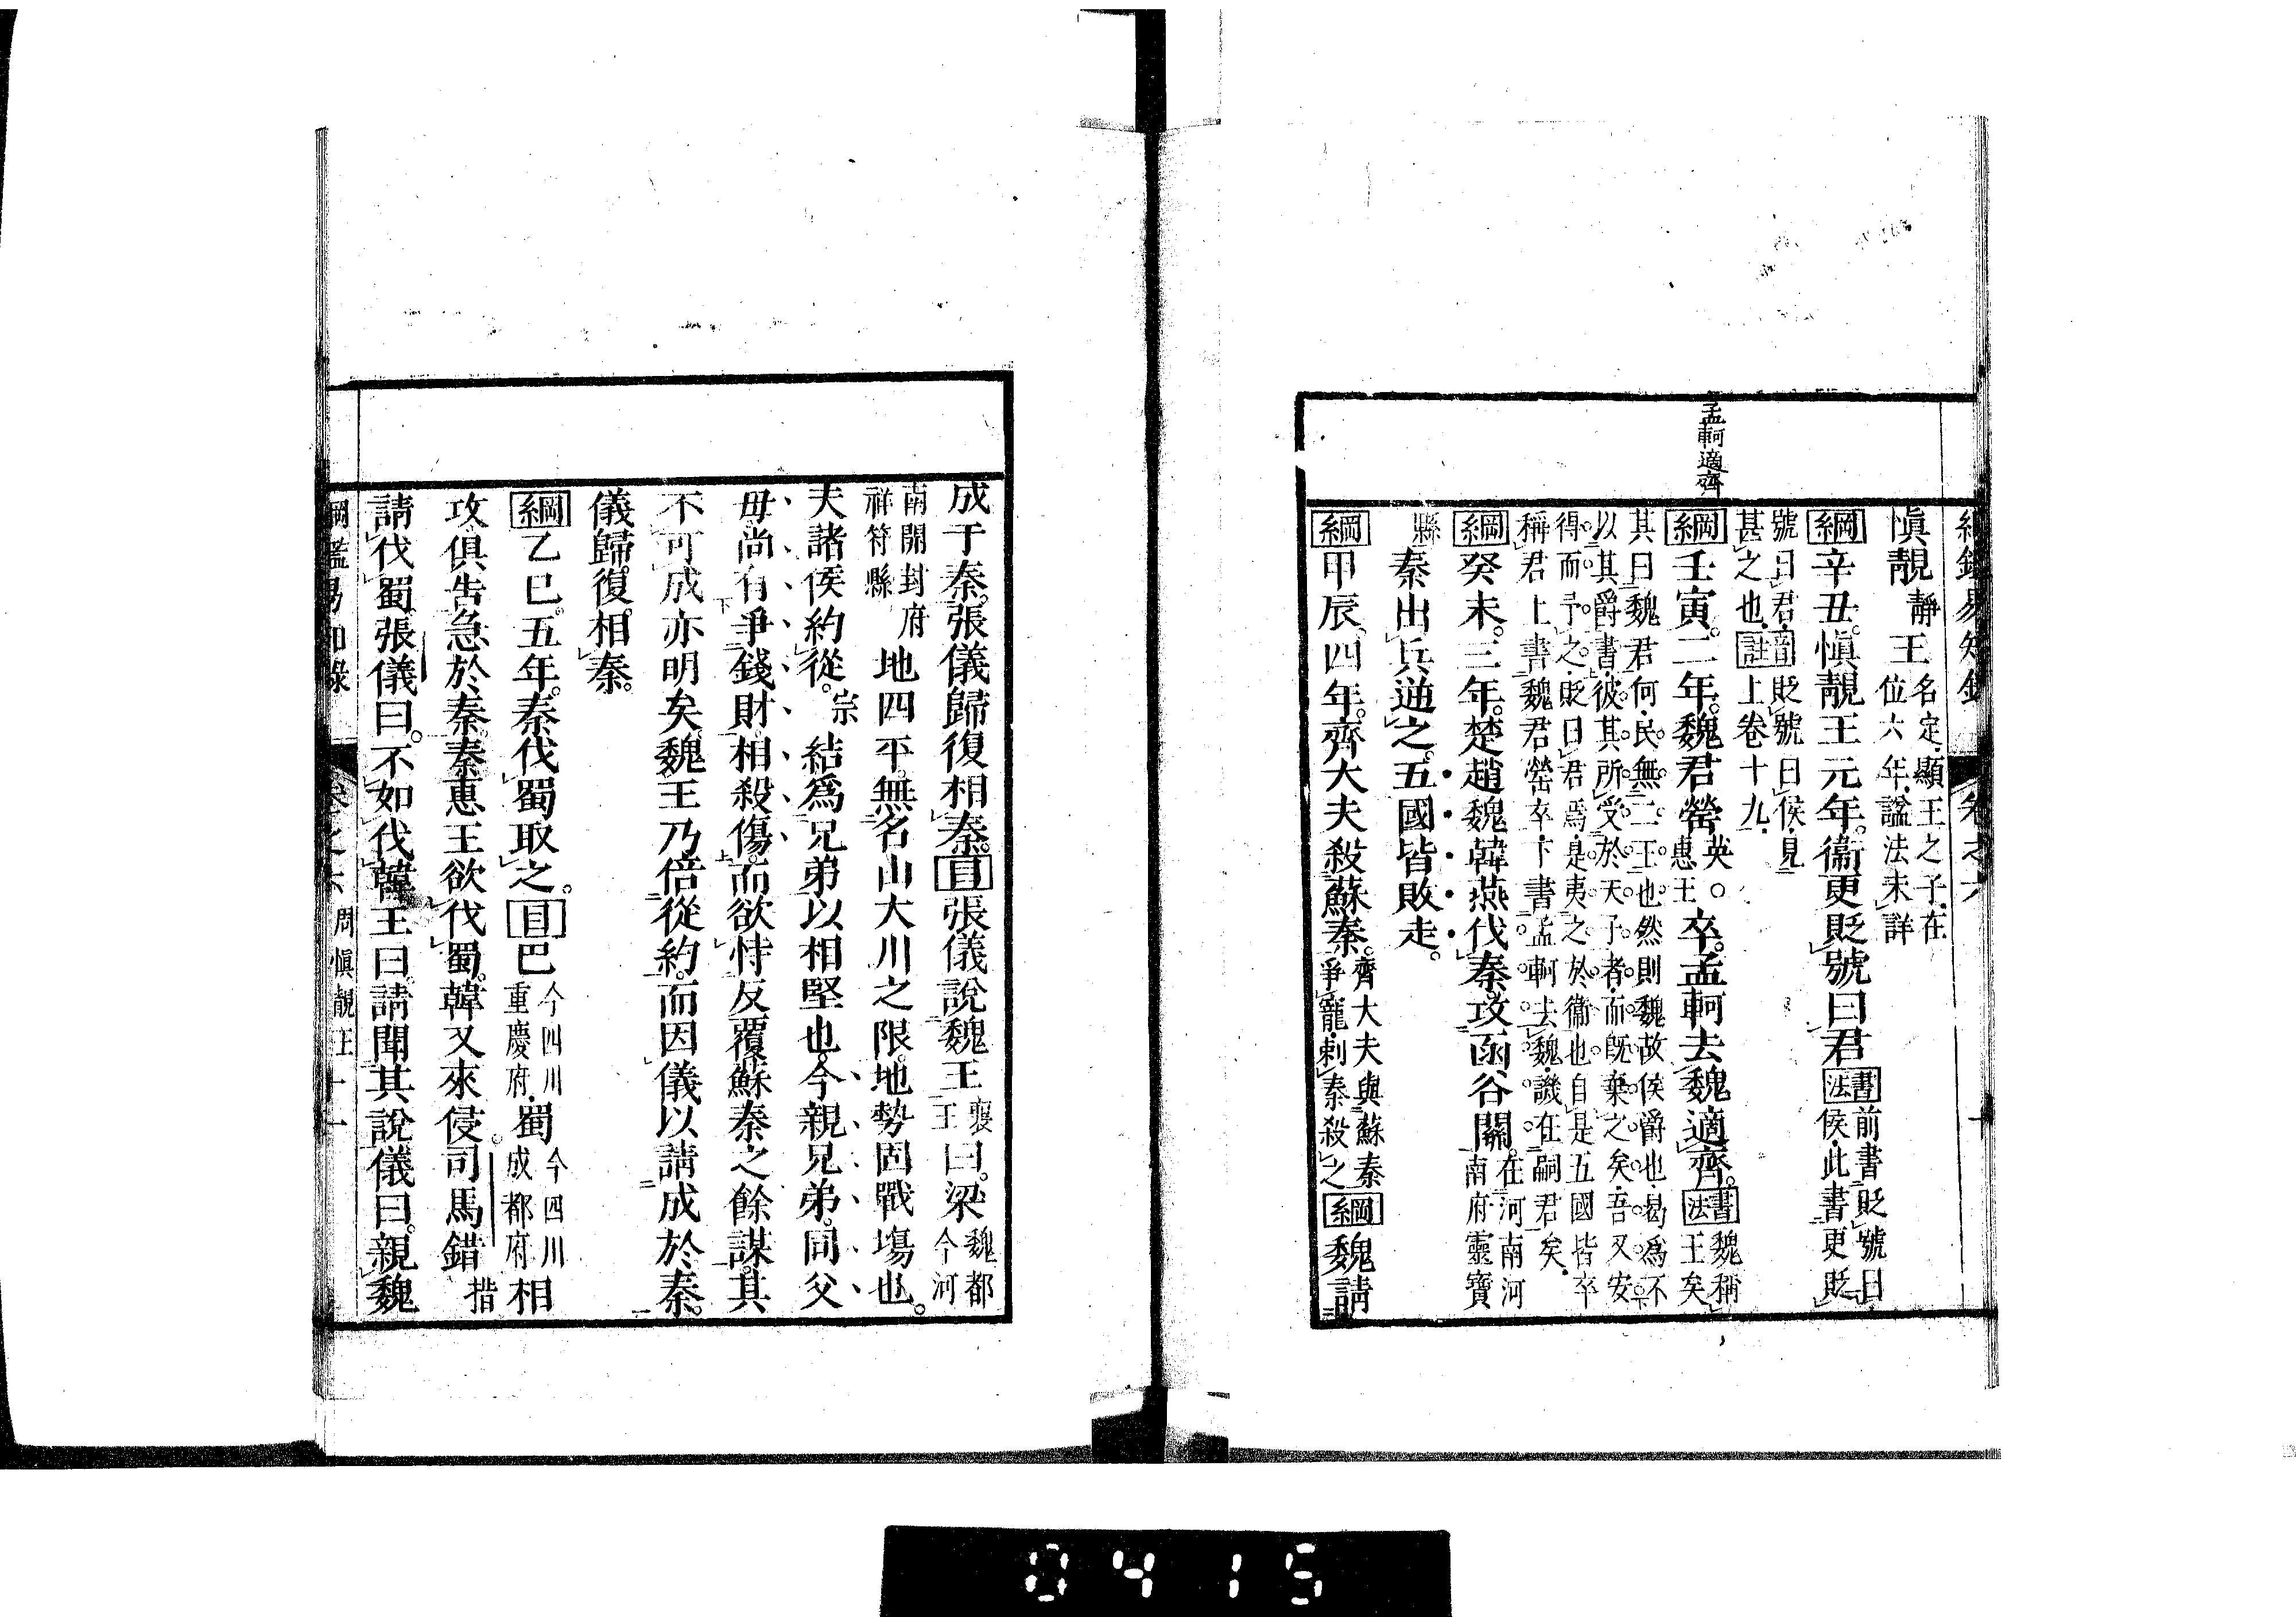 孟軻適齊
慎靚靜王名定顯王之子在位六年謚法未詳
綱辛丑慎靚王元年衞更貶號曰君書法前書貶號曰侯此書更貶
號曰君甚之也註音貶號曰侯見上卷十九
綱壬寅二年魏君罃英惠王卒孟軻去魏適齊書法魏稱王矣
其曰魏君何民無二王也然則魏故侯爵也曷爲不
以其爵書彼其所受於天子者而既棄之矣吾又安
得而予之貶曰君焉是夷之於衞也自是五國皆卒
稱君上書魏君罃卒下書孟軻去魏譏在嗣君矣
綱癸未三年楚趙魏韓燕伐秦攻函谷關在河南河南府靈寶
縣秦出兵逆之五國皆敗走
綱甲辰四年齊大夫殺蘇秦齊大夫與蘇秦爭寵刺秦殺之綱魏請
成于秦張儀歸復相秦目張儀說魏王襄王曰梁魏都今河
南開封府祥符縣地四平無名山大川之限地勢固戰塲也
夫諸侯約從宗結爲兄弟以相堅也今親兄弟同父
毋尚有爭錢財相殺傷而欲恃反覆蘇秦之餘謀其
不可成亦明矣魏王乃倍從約而因儀以請成於秦
儀歸復相秦
綱乙巳五年秦伐蜀取之目巴今四川重慶府蜀今四川成都府相
攻俱告急於秦秦惠王欲伐蜀韓又來侵司馬錯措
請伐蜀張儀曰不如伐韓王曰請聞其說儀曰親魏
綱鑑易知錄 卷之六 周慎靚王 十一
0415